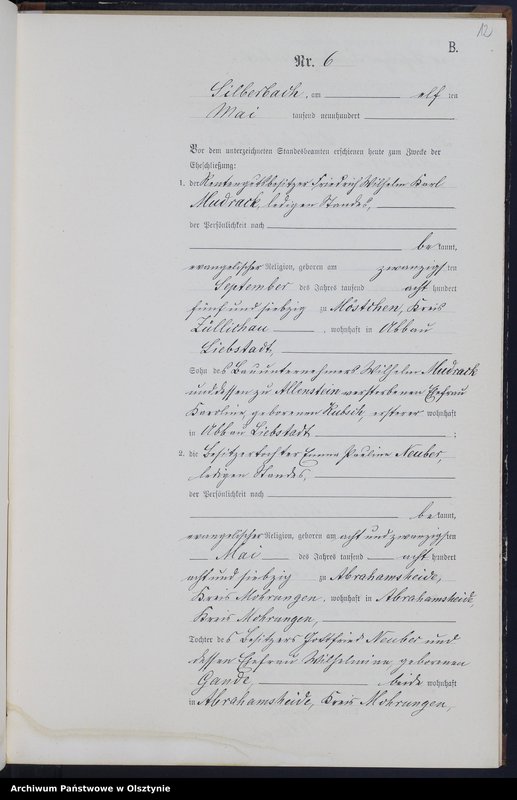 12
B.
Nr. 6
Silberbach, am elf ten
Mai tausend neunhundert
Vor dem unterzeichneten Standesbeamten erschienen heute zum Zwecke der
Eheschließung:
1. der Rentengutsbesitzer Friedrich Wilhelm Karl
Mudrack, ledigen Standes,
der Persönlichkeit nach
be kannt,
evangelischer Religion, geboren am zwanzigsten
September des Jahres tausend acht hundert
fünf und siebzig zu Möstchen, Kreis
Züllichau, wohnhaft in Abbau
Liebstadt,
Sohn des Bauunternehmers Wilhelm Mudrack
und dessen zu Allenstein verstorbenen Ehefrau
Karoline, geborenen Kubsch, ersterer wohnhaft
in Abbau Liebstadt ;
2. die Besitzertochter Emma Pauline Neuber,
ledigen Standes,
der Persönlichkeit nach
be kannt,
evangelischer Religion, geboren am acht und zwanzigsten
Mai des Jahres tausend acht hundert
acht und siebzig zu Abrahamsheide,
Kreis Mohrungen, wohnhaft in Abrahamsheide,
Kreis Mohrungen,
Tochter des Besitzers Gottfried Neuber und
dessen Ehefrau Wilhelmine, geborenen
Gande, beide wohnhaft
in Abrahamsheide, Kreis Mohrungen,
Archiwum Państwowe w Olsztynie